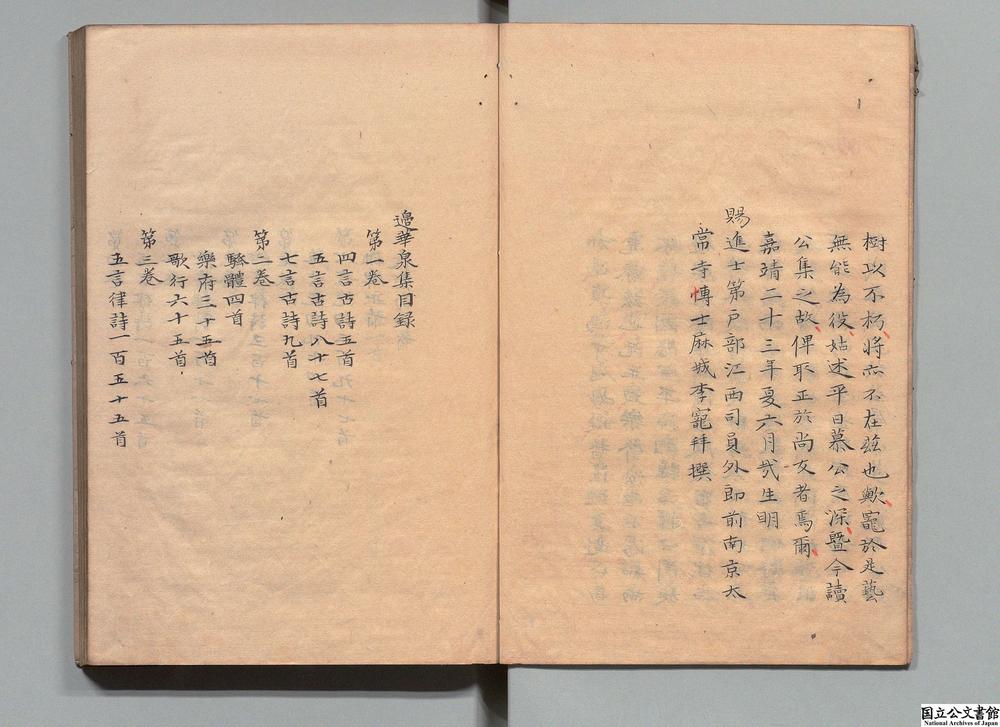 樹以不朽将亦不在兹也歟寵於是藝
無能為役姑述平日慕公之深暨今讀
公集之故俾取正於尚友者焉爾
嘉靖二十三年夏六月哉生明
賜進士第戸部江西司員外郎前南京太
常寺博士麻城李寵拜撰
邉華泉集目録
第一卷
四言古詩五首
五言古詩八十七首
七言古詩九首
第二卷
騷體四首
樂府三十五首
歌行六十五首
第三卷
五言律詩一百五十五首
国立公文書館
National Archives of Japan